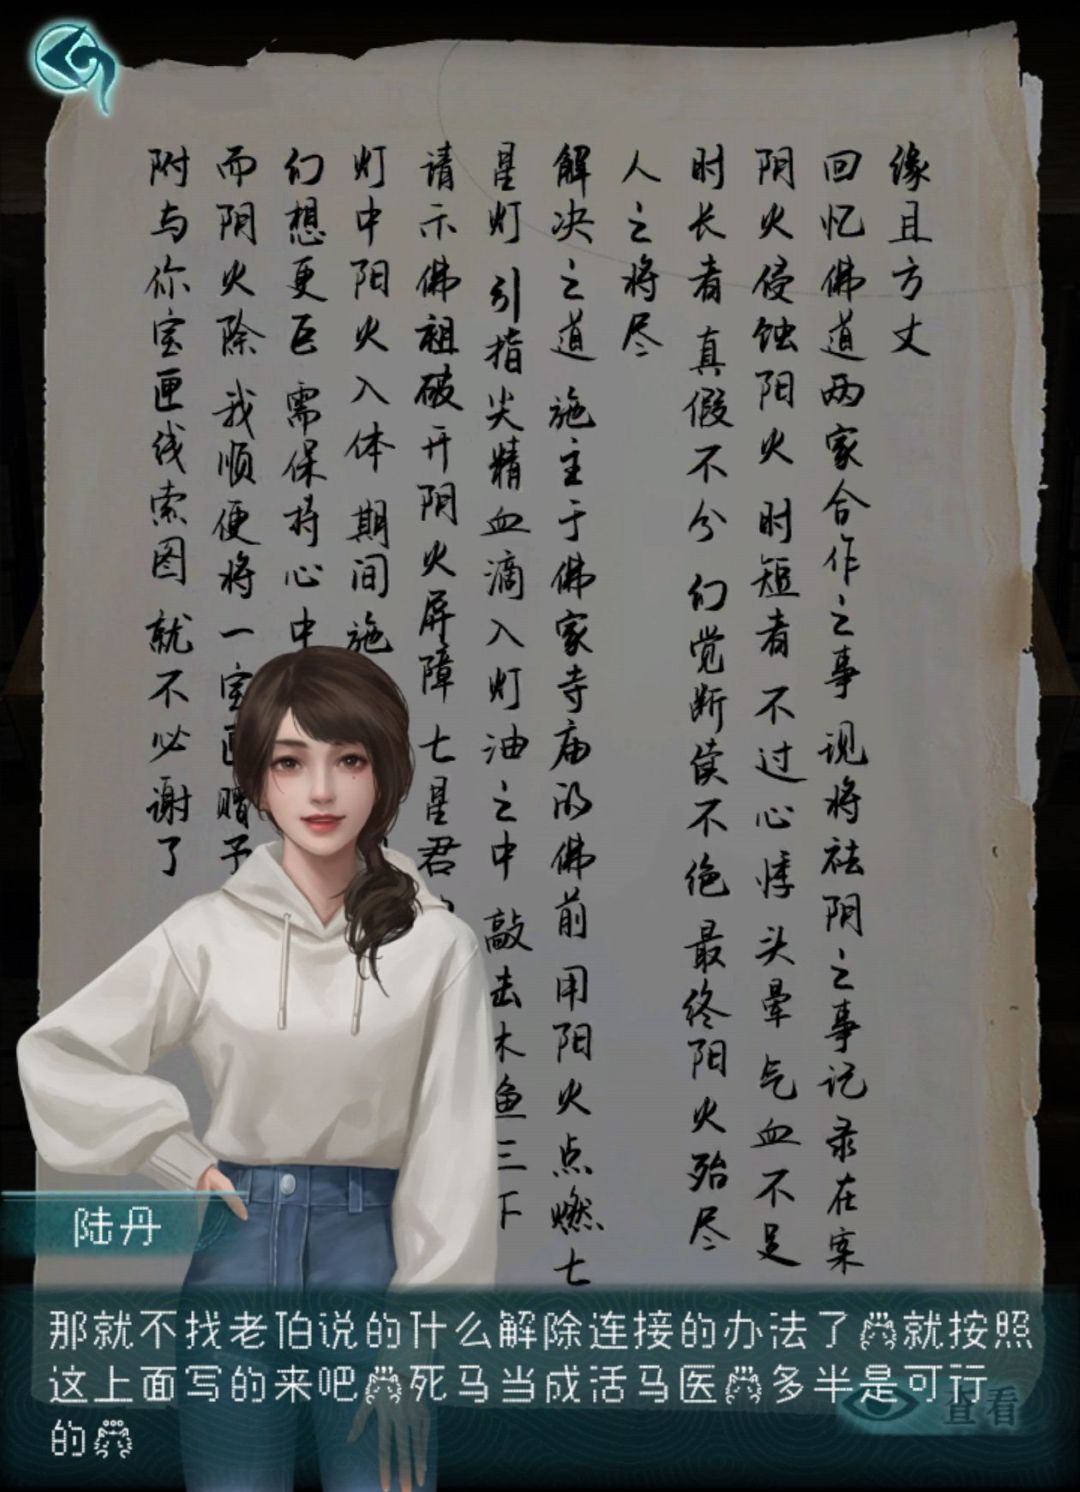 缘且方丈
回忆佛道两家合作之事 现将祛阴之事记录在案
阴火侵蚀阳火 时短者 不过心悸头晕 气血不足
时长者 真假不分 幻觉断续不绝 最终阳火殆尽
人之将尽
解决之道 施主于佛家寺庙的佛前 用阳火点燃七
星灯 引指尖精血滴入灯油之中 敲击木鱼三下
请示佛祖破开阴火屏障 七星君
灯中阳火入体 期间施
幻想更巨 需保持心中
而阴火除 我顺便将一宝匣赠予
附与你宝匣线索图 就不必谢了
陆丹
那就不找老伯说的什么解除连接的办法了 就按照
这上面写的来吧 死马当成活马医 多半是可行
的
查看